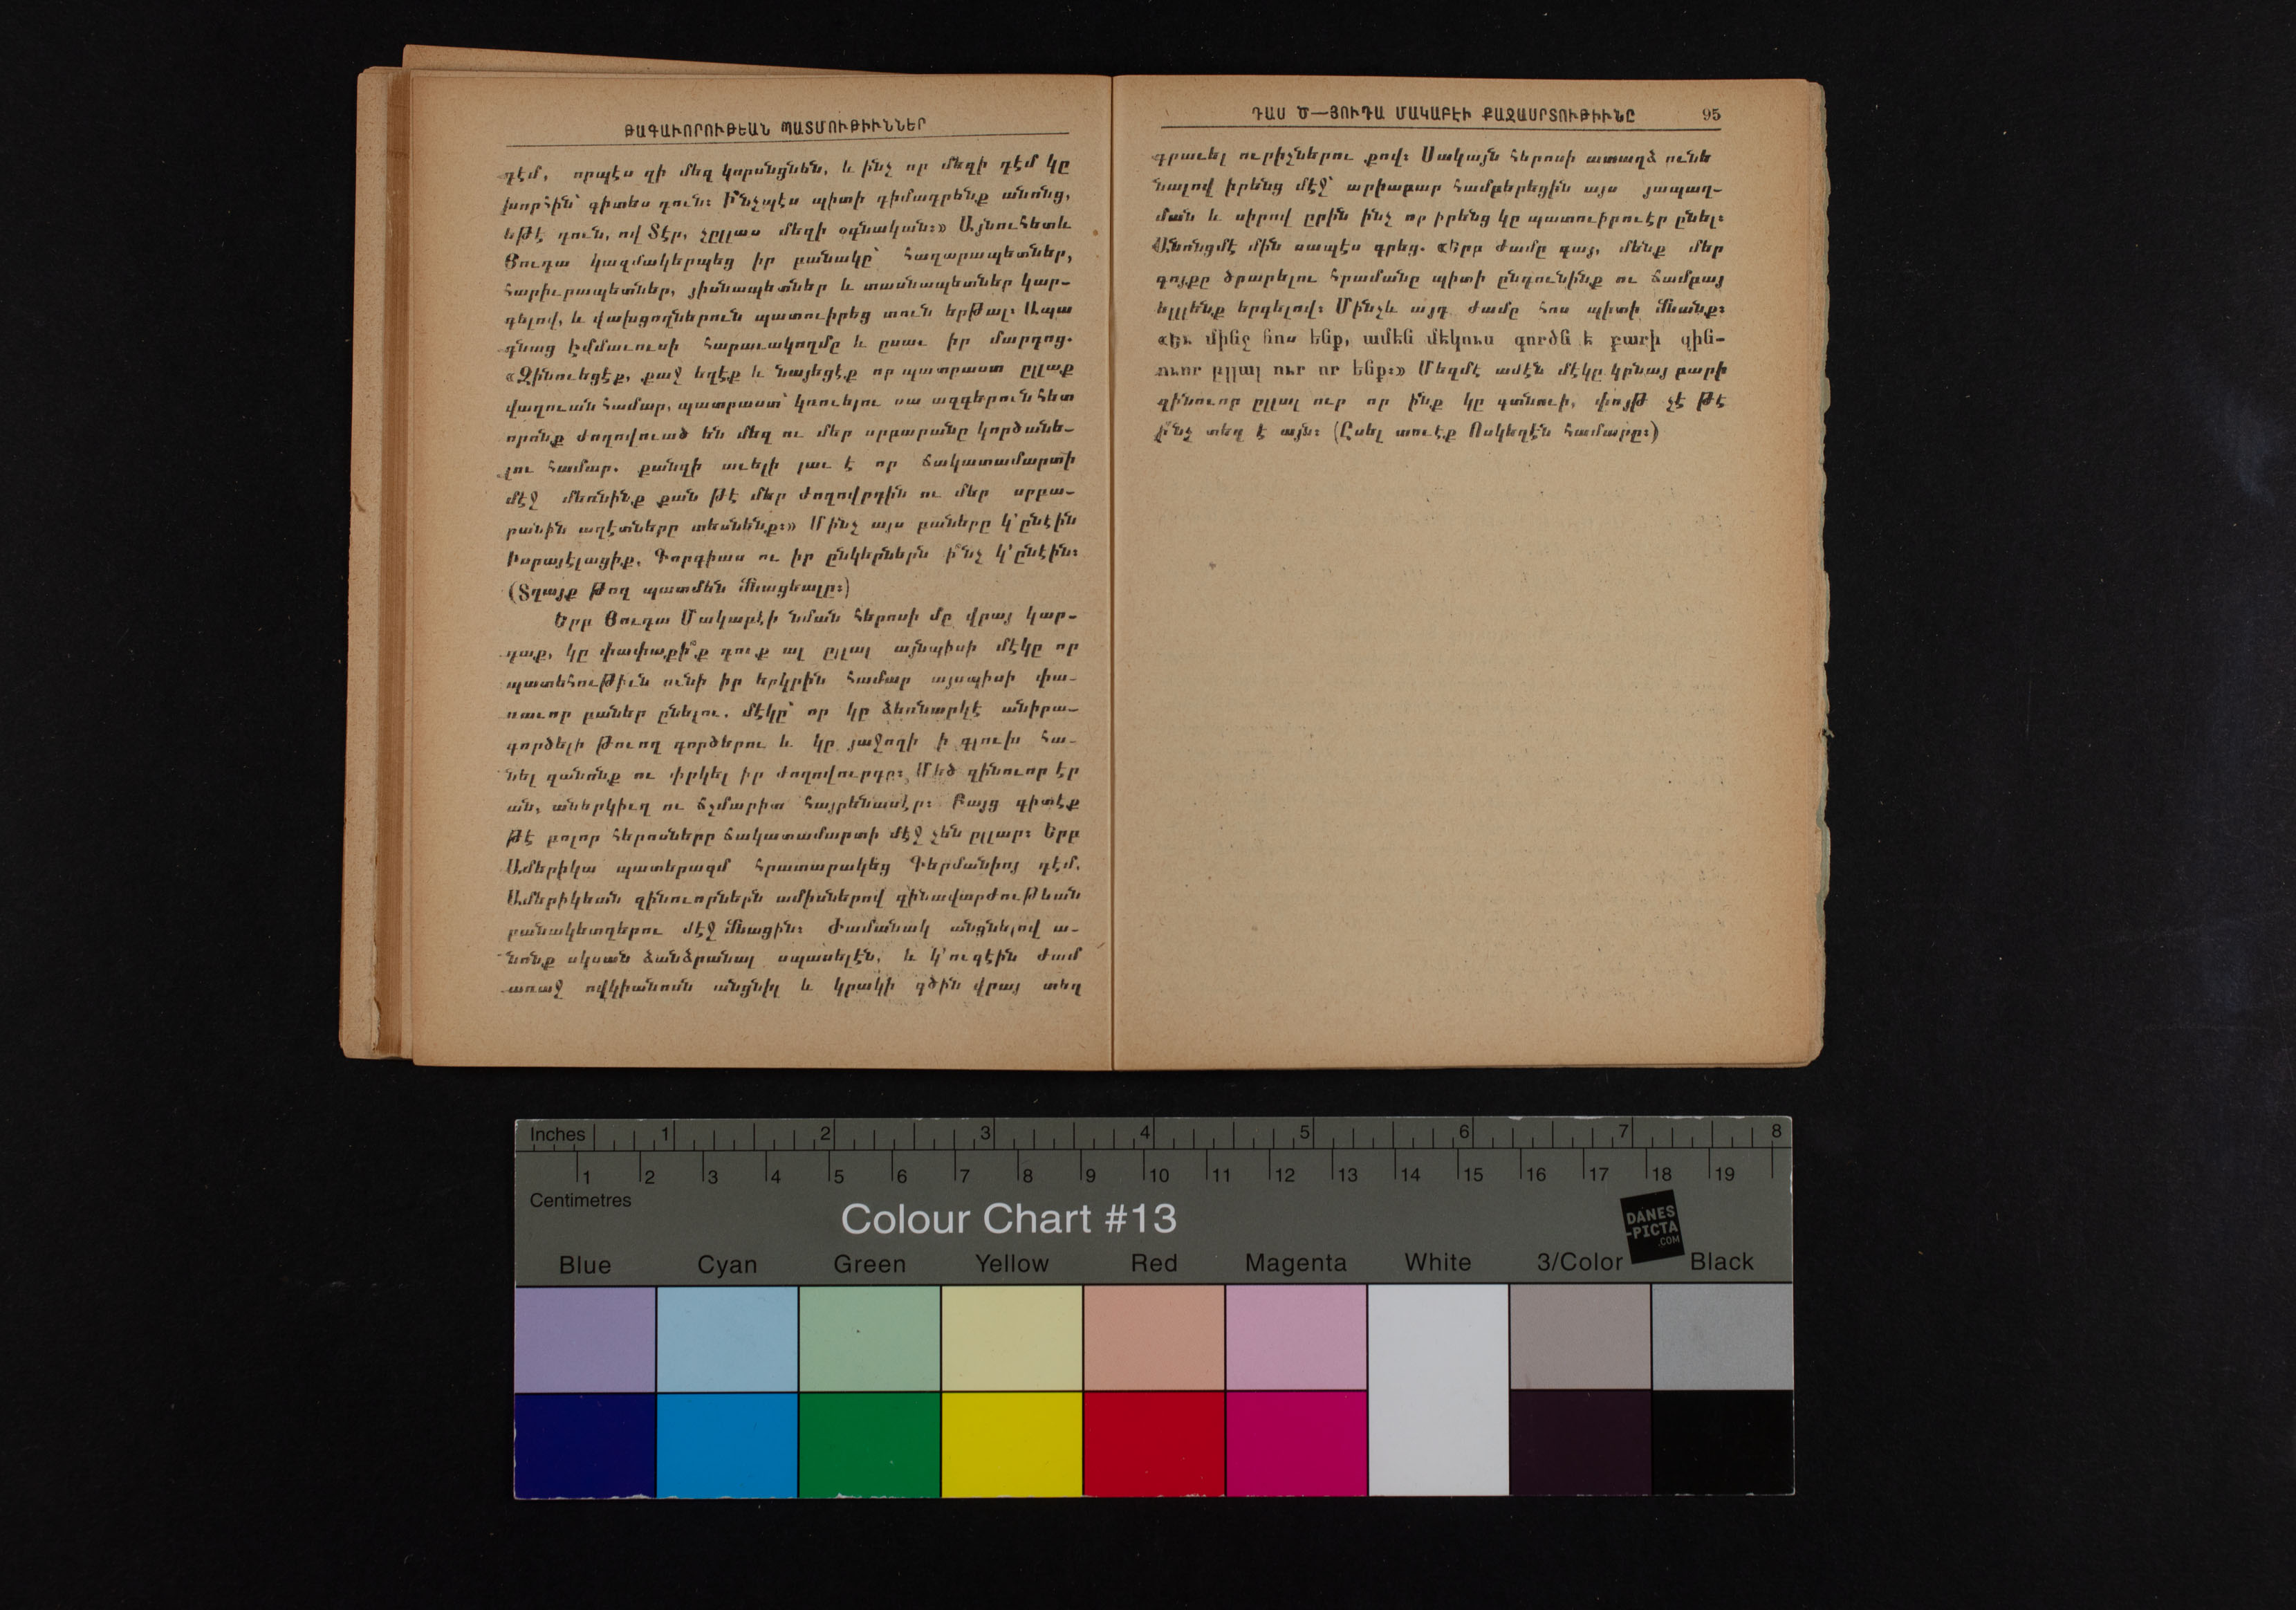 ԹԱԳԱՒՈՐՈՒԹԵԱՆ ՊԱՏՄՈՒԹԻՒՆՆԵՐ
դէմ, որպէս զի մեզ կորսնցնեն, և ինչ որ մեզի դէմ կը
խորհին՝ գիտես դուն։ Ի՞նչպէս պիտի դիմադրենք անոնց,
եթէ դուն, ով Տէր, չըլլաս մեզի օգնական։» Այնուհետև
Յուդա կազմակերպեց իր բանակը՝ հազարապետներ,
հարիւրապետներ, յիսնապետներ և տասնապետներ կար-
գելով, և վախցողներուն պատուիրեց տուն երթալ։ Ապա
գնաց Էմմաւուսի հարաւակողմը և ըսաւ իր մարդոց.
«Զինուեցէք, քաջ եղէք և նայեցէք որ պատրաստ ըլլաք
վաղուան համար, պատրաստ՝ կռուելու սա ազգերուն հետ
որոնք ժողովուած են մեզ ու մեր սրբարանը կործանե-
լու համար. քանզի աւելի լաւ է որ ճակատամարտի
մէջ մեռնինք քան թէ մեր ժողովրդին ու մեր սրբա-
րանին աղէտները տեսնենք։» Մինչ այս բաները կ՚ընէին
Իսրայէլացիք, Գորգիաս ու իր ընկերներն ի՞նչ կ՚ընէին։
(Տղայք թող պատմեն մնացեալը։)
Երբ Յուդա Մակաբէի նման հերոսի մը վրայ կար-
դաք, կը փափաքի՞ք դուք ալ ըլլալ այնպիսի մէկը որ
պատեհութիւն ունի իր երկրին համար այսպիսի փա-
ռաւոր բաներ ընելու. մէկը՝ որ կը ձեռնարկէ անիրա-
գործելի թուող գործերու և կը յաջողի ի գլուխ հա-
նել զանոնք ու փրկել իր ժողովուրդը։ Մեծ զինուոր էր
ան, աներկիւղ ու ճշմարիտ հայրենասէր։ Բայց գիտէք
թէ բոլոր հերոսները ճակատամարտի մէջ չեն ըլլար։ Երբ
Ամերիկա պատերազմ հրատարակեց Գերմանիոյ դէմ,
Ամերիկեան զինուորներն ամիսներով զինավարժութեան
բանակետղերու մէջ մնացին։ Ժամանակ անցնելով ա-
նոնք սկսան ձանձրանալ սպասելէն, և կ՚ուզէին ժամ
առաջ ովկիանոսն անցնիլ և կրակի գծին վրայ տեղ
ԴԱՍ Ծ—ՅՈՒԴԱ ՄԱԿԱԲԷԻ ՔԱՋԱՍՐՏՈՒԹԻՒՆԸ 95
գրաւել ուրիշներու քով։ Սակայն հերոսի առաղձ ունե
նալով իրենց մէջ՝ արիաբար համբերեցին այս յապաղ-
ման և սիրով ըրին ինչ որ իրենց կը պատուիրուէր ընել։
Անոնցմէ մին սապէս գրեց. «Երբ ժամը գայ, մենք մեր
գոյքը ծրարելու հրամանը պիտի ընդունինք ու ճամբայ
ելլլենք երգելով։ Մինչև այդ ժամը հոս պիտի մնանք։
«Եւ մինչ հոս ենք, ամեն մէկուս գործն է բարի զին-
ուոր ըլլալ ուր որ ենք։» Մեզմէ ամէն մէկը կրնայ բարի
զինուոր ըլլալ ուր որ ինք կը գտնուի, փոյթ չէ թէ
ի՛նչ տեղ է այն։ (Ըսել տուէք Ոսկեղէն համարը։)
Inches 1 2 3 4 5 6 7 8
1 2 3 4 5 6 7 8 9 10 11 12 13 14 15 16 17 18 19
Centimetres
Colour Chart #13
DANES
-PICTA
.COM
Blue Cyan Green Yellow Red Magenta White 3/Color Black